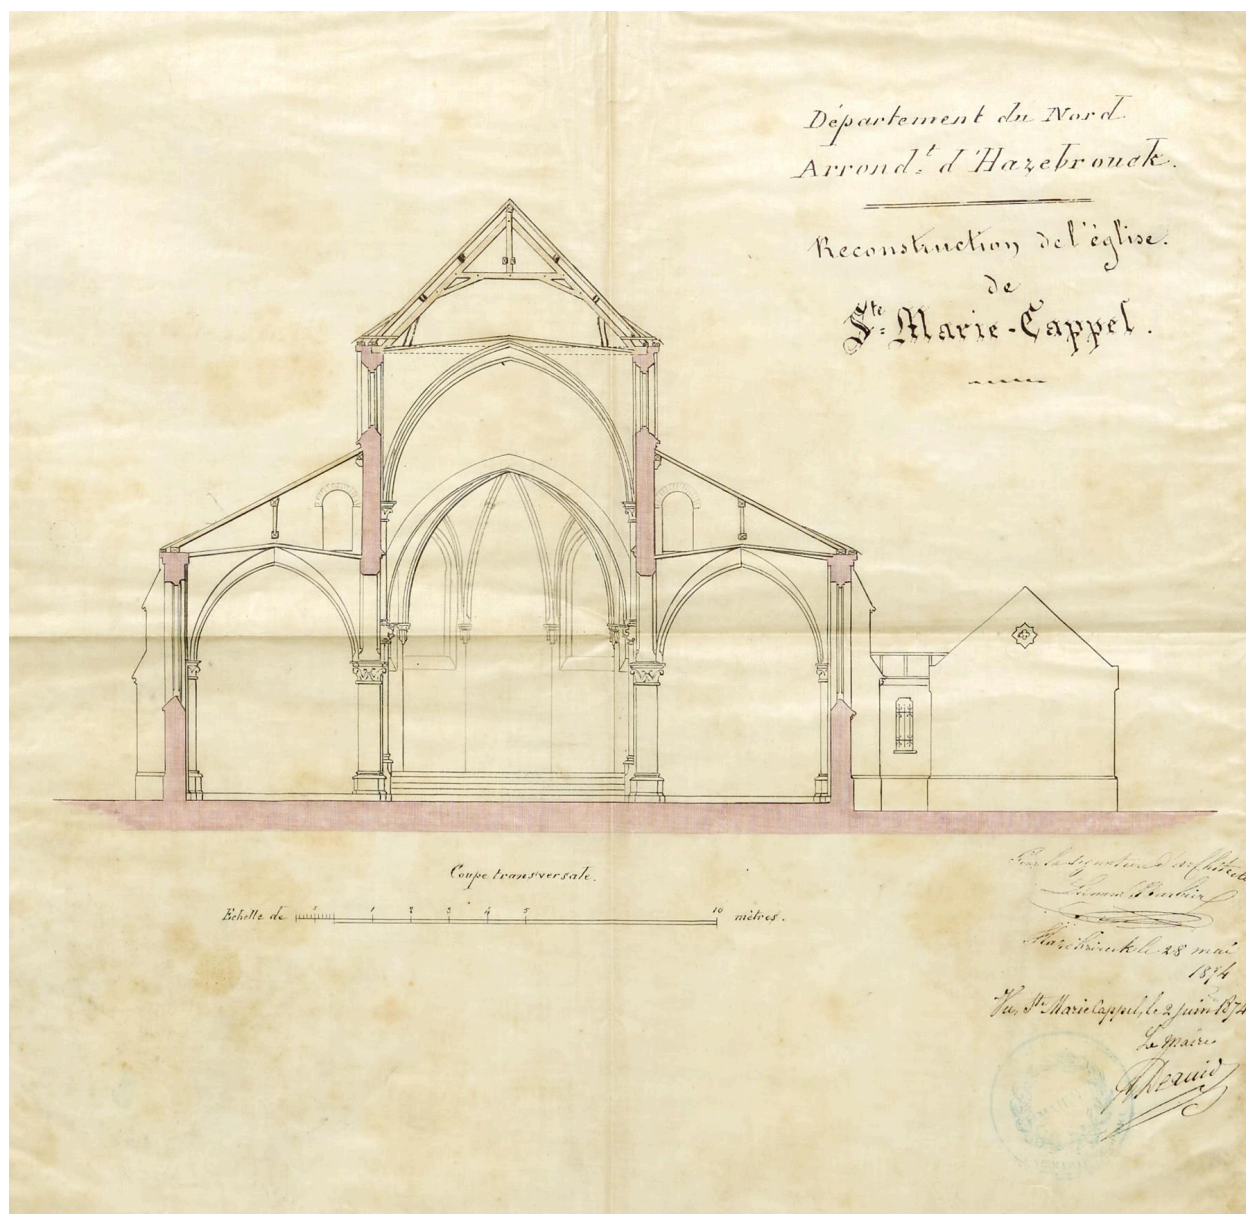 Département du Nord.
Arrond.t d'Hazebrouck.
Reconstruction de l'église.
de
Ste Marie-Cappel.
Coupe transversale.
Echelle de 1 1 2 3 4 5 10 mètres.
la signature d'architecte
Hazebrouck le 28 mai
1874
Vu, Ste Marie Cappel, le 2 juin 1874
Le Maire
MAIRIE